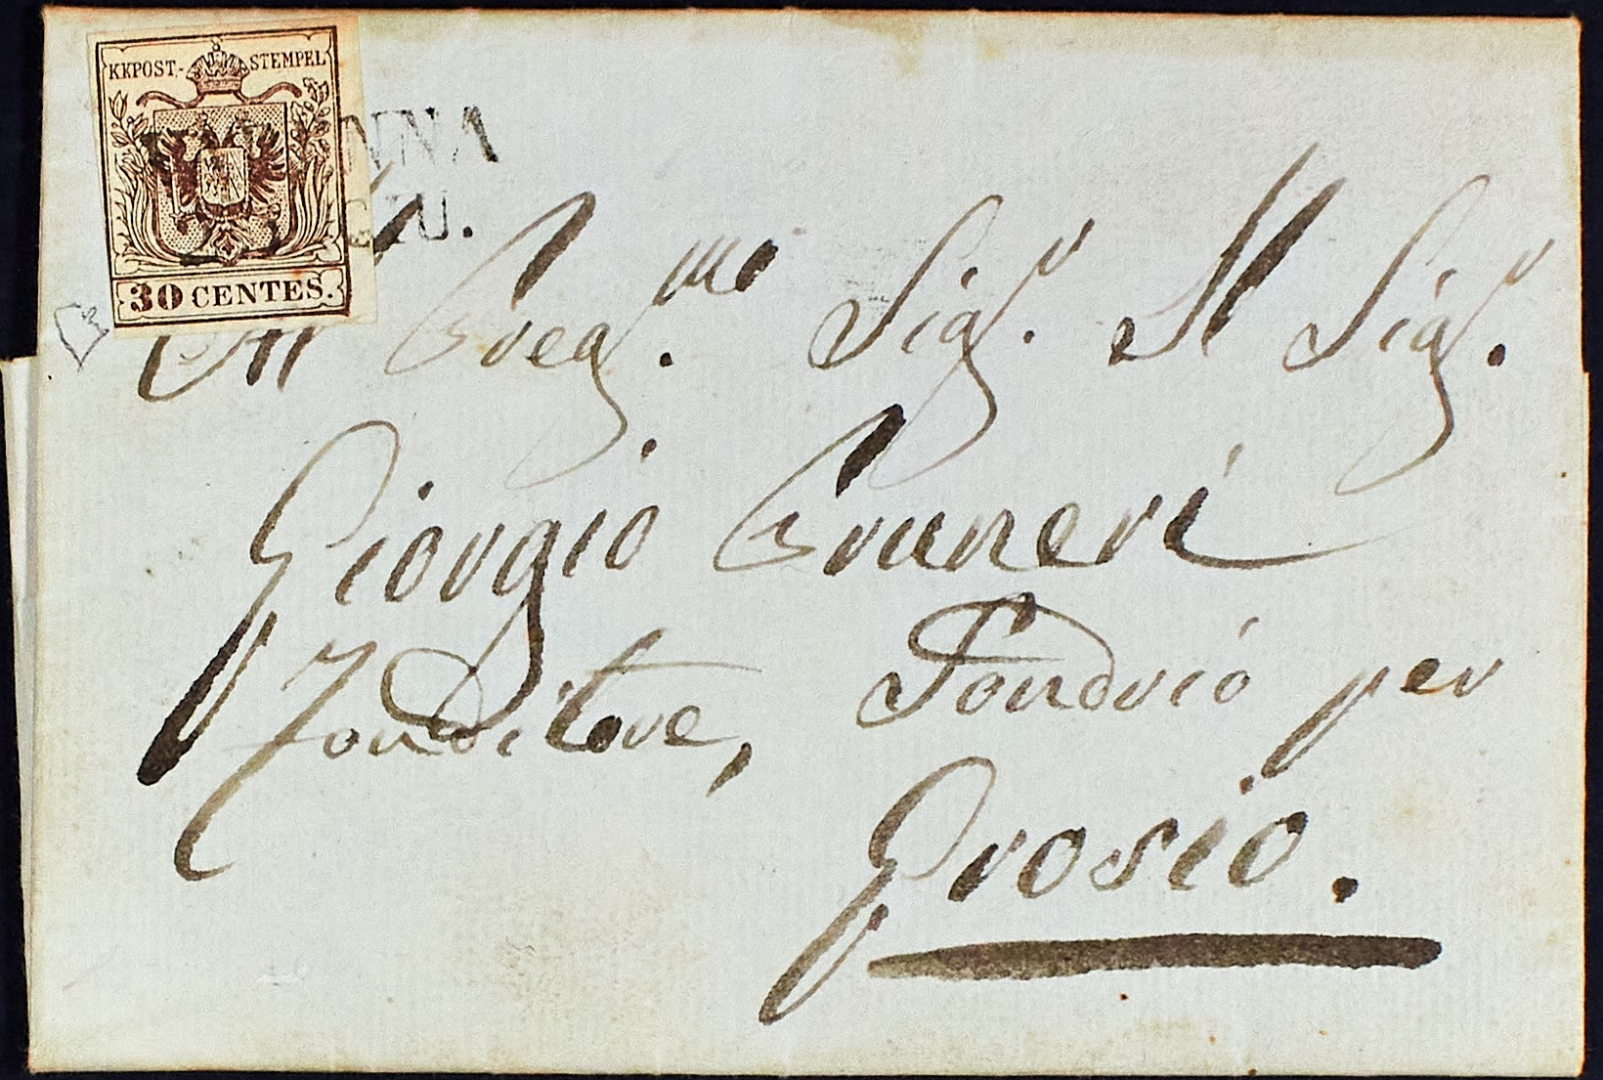 KKPOST.- STEMPEL
30 CENTES.
NNA
GIU.
Al Preg.mo Sig.r Il Sig.r
Giorgio Pruneri
Fonditore, Sondrio per
Grosio.